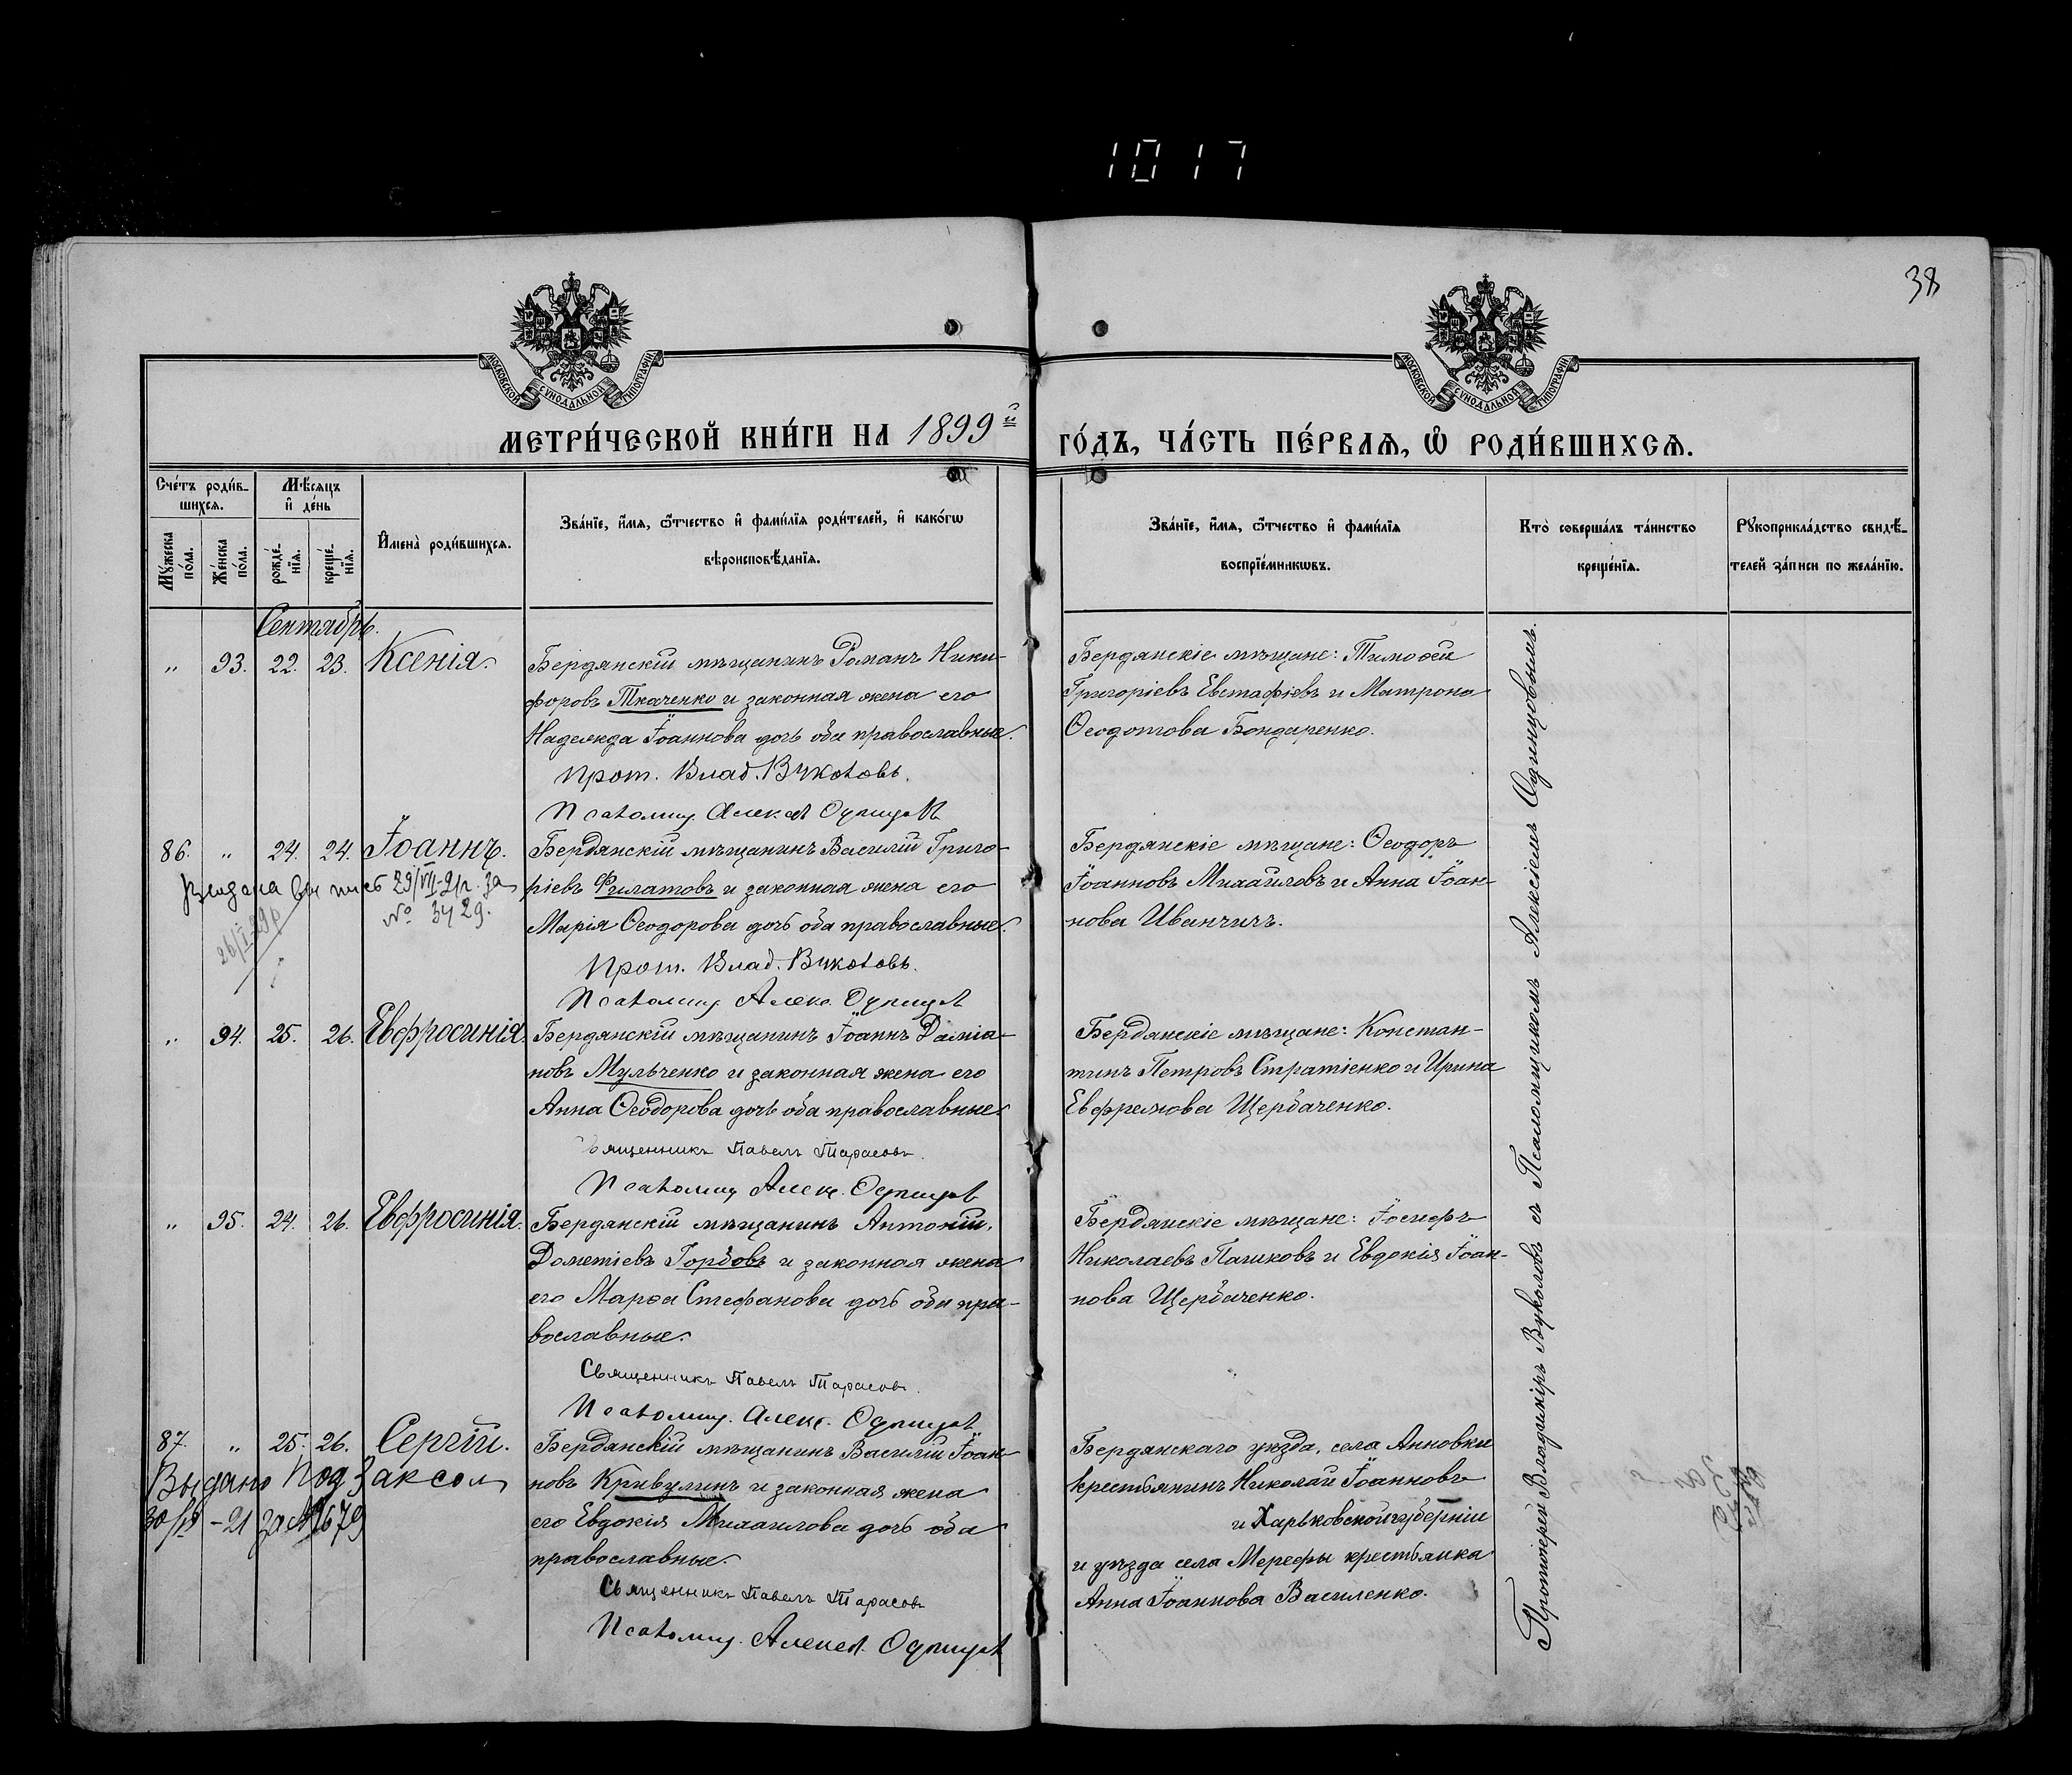 1017
38
МОСКОВСКОЙ СѴНОДАЛЬНОЙ ТИПОГРАФІИ
МОСКОВСКОЙ СѴНОДАЛЬНОЙ ТИПОГРАФІИ
МЕТРИ́ЧЕСКОЙ КНИ́ГИ НА 1899й
ГО́ДЪ, ЧА́СТЬ ПЕ́РВАѦ, Ѿ РОДИ́ВШИХСѦ.
Сче́тъ роди́в-
шихсѧ.
Мꙋ́жеска по́ла.
Же́нска по́ла.
Мѣ́сѧцъ
и҆ де́нь
рожде́-нїѧ.
креще́-нїѧ.
И҆мена̀ роди́вшихсѧ.
Зва́нїе, и҆́мѧ, ѻ҆́тчество и҆ фами́лїѧ роди́телей, и҆ како́гѡ
вѣроисповѣ́данїѧ.
Зва́нїе, и҆́мѧ, ѻ҆́тчество и҆ фами́лїѧ
воспрїе́мникѡвъ.
Кто̀ соверша́лъ та́инство
креще́нїѧ.
Рꙋкоприкла́дство свидѣ́-
телей за́писи по жела́нїю.
Сентябрь.
" 93. 22. 23. Ксенія.
Бердянскій мѣщанинъ Романъ Ники-
форовъ Ткаченко и законная жена его
Надежда Іоаннова дочь оба православные.
Прот. Влад. Вуколовъ.
Псаломщ. Алексѣй Одинцовъ
Бердянскіе мѣщане: Тимоѳей
Григоріевъ Евстафіевъ и Матрона
Ѳеодотова Бондаренко.
86. " 24. 24. Іоаннъ.
Выдана выпись 29/VII-21г. за
№ 3429.
Бердянскій мѣщанинъ Василій Григо-
ріевъ Филатовъ и законная жена его
Марія Ѳеодорова дочь оба православные.
Прот. Влад. Вуколовъ.
Псаломщ. Алекс. Одинцовъ
Бердянскіе мѣщане: Ѳеодоръ
Іоанновъ Михайловъ и Анна Іоан-
нова Иванчичъ.
" 94. 25. 26. Евфросинія.
Бердянскій мѣщанинъ Іоаннъ Даміа-
новъ Мульченко и законная жена его
Анна Ѳеодорова дочь оба православные.
Священникъ Павелъ Тарасовъ.
Псаломщ. Алекс. Одинцовъ
Бердянскіе мѣщане: Констан-
тинъ Петровъ Стратіенко и Ирина
Евфремова Щербаченко.
" 95. 24. 26. Евфросинія.
Бердянскій мѣщанинъ Антоній
Дометіевъ Горбовъ и законная жена
его Марѳа Стефанова дочь оба пра-
вославные.
Священникъ Павелъ Тарасовъ.
Псаломщ. Алекс. Одинцовъ
Бердянскіе мѣщане: Іосифъ
Николаевъ Пашковъ и Евдокія Іоан-
нова Щербаченко.
87. " 25. 26. Сергій.
Выдано под Заксом
30/IV -21 за №1679
Бердянскій мѣщанинъ Василій Іоан-
новъ Кривулинъ и законная жена
его Евдокія Михаилова дочь оба
православные.
Священникъ Павелъ Тарасовъ
Псаломщ. Алексѣй Одинцовъ
Бердянскаго уѣзда, села Анновки
крестьянинъ Николай Іоанновъ
и Харьковской губерніи
и уѣзда села Мерефы крестьянка
Анна Іоаннова Василенко.
Протоіерей Владиміръ Вуколовъ съ Псаломщикомъ Алексіемъ Одинцовымъ.